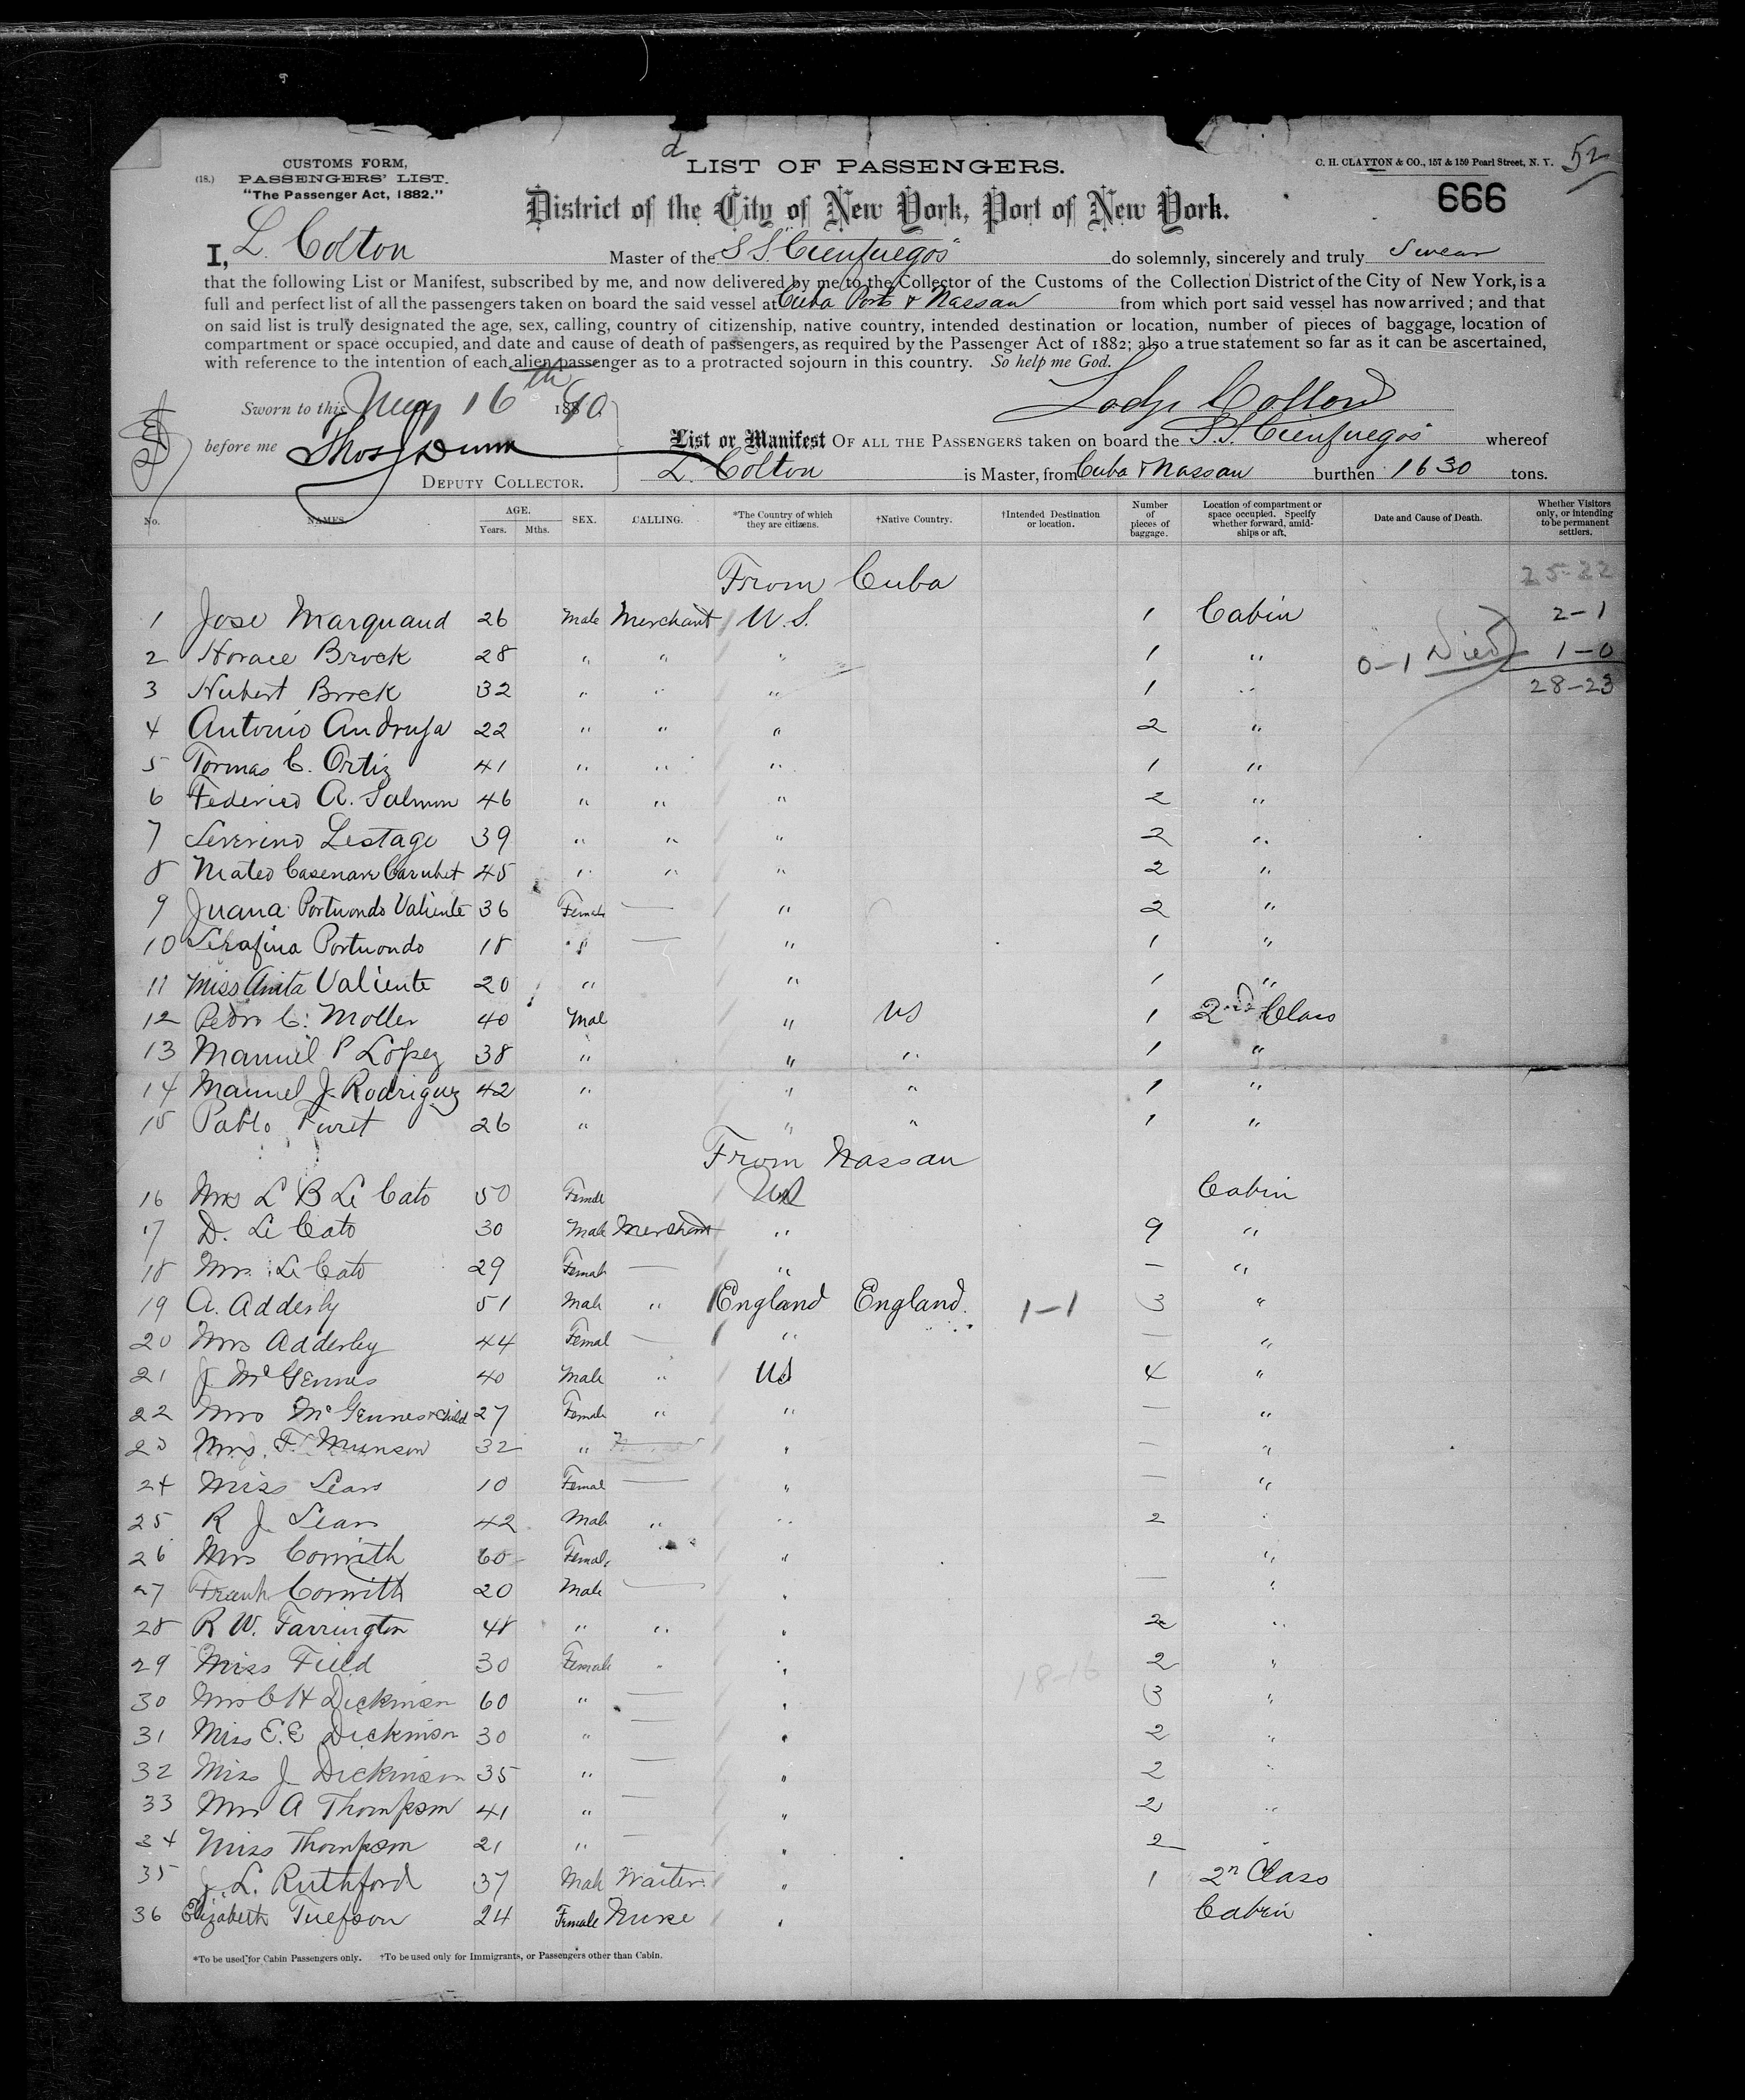 52
CUSTOMS FORM,
(18.) PASSENGERS' LIST.
"The Passenger Act, 1882."
LIST OF PASSENGERS.
C. H. CLAYTON & CO., 157 & 159 Pearl Street, N. Y.
666
District of the City of New York, Port of New York.
I, L. Colton Master of the S S. "Cienfuegos" do solemnly, sincerely and truly Swear
that the following List or Manifest, subscribed by me, and now delivered by me to the Collector of the Customs of the Collection District of the City of New York, is a
full and perfect list of all the passengers taken on board the said vessel at Cuba Ports & Nassau from which port said vessel has now arrived; and that
on said list is truly designated the age, sex, calling, country of citizenship, native country, intended destination or location, number of pieces of baggage, location of
compartment or space occupied, and date and cause of death of passengers, as required by the Passenger Act of 1882; also a true statement so far as it can be ascertained,
with reference to the intention of each alien passenger as to a protracted sojourn in this country. So help me God.
Sworn to this May 16th 1890. Colton
before me Thos J Dunn
List or Manifest OF ALL THE PASSENGERS taken on board the S.S. Cienfuegos whereof
DEPUTY COLLECTOR.
L. Colton is Master, from Cuba & Nassau burthen 1630 tons.
No. NAMES. AGE. Years. Mths. SEX. CALLING. *The Country of which they are citizens. †Native Country. †Intended Destination or location. Number of pieces of baggage. Location of compartment or space occupied. Specify whether forward, amidships or aft. Date and Cause of Death. Whether Visitors only, or intending to be permanent settlers.
From Cuba 25-22
1 Jose Marquand 26 Male Merchant U.S. 1 Cabin 2-1
2 Horace Brock 28 " " " 1 " 0-1 Died 1-0
3 Hubert Brock 32 " " " 1 " 28-23
4 Antonio 22 " " " 2 "
5 Tormas C. Ortiz 41 " " " 1 "
6 Federico A. Salmon 46 " " " 2 "
7 Severino Lestage 39 " " " 2 "
8 Mateo 45 " " " 2 "
9 Juana Portuondo Valiente 36 Female — " 2 "
10 Serafina Portuondo 18 " — " 1 "
11 Miss Anita Valiente 20 " " 1 "
12 Pedro C. Moller 40 Mal " US 1 2nd Class
13 Manuel P Lopez 38 " " " 1 "
14 Manuel J. Rodriguez 42 " " " 1 "
15 Pablo Furet 26 " " " 1 "
From Nassau
16 Mrs L B Le Cato 50 Femle US Cabin
17 D. Le Cato 30 Male Merchant " 9 "
18 Mrs. Le Cato 29 Female — " — "
19 A. Adderly 51 Male " England England. 1-1 3 "
20 Mrs Adderley 44 Femal — " — "
21 J McGennes 40 Male " US 4 "
22 Mrs McGennes & Child 27 Female " " — "
23 Mrs. F. Munson 32 " — " — "
24 Miss Sears 10 Femal — " — "
25 R J. Sears 42 Male " " 2 "
26 Mrs Corwith 60 Femal " "
27 Frank Corwith 20 Male — " — "
28 R W. Farrington 48 " " " 2 "
29 Miss Field 30 Female " " 18-16 2 "
30 Mrs C H Dickinson 60 " — " 3 "
31 Miss E. E Dickinson 30 " — " 2 "
32 Miss J Dickinson 35 " — " 2 "
33 Mrs A Thompson 41 " — " 2 "
34 Miss Thompson 21 " — " 2 "
35 J. L. Ruthford 37 Male Waiter " 1 2n Class
36 Elizabeth 24 Female Nurse " Cabin
*To be used for Cabin Passengers only. †To be used only for Immigrants, or Passengers other than Cabin.